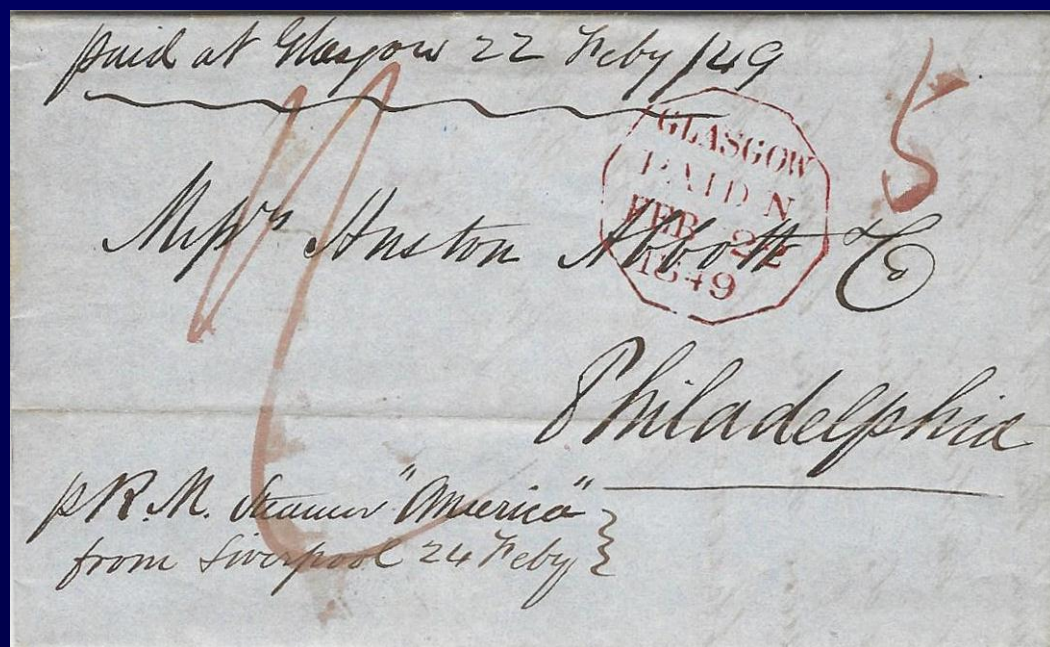 paid at Glasgow 22 Feby /49
GLASGOW
PAID N
FEB 22
1849
5
Messrs Huston Abbott & Co
Philadelphia
p R. M. Steamer "America"
from Liverpool 24 Feby